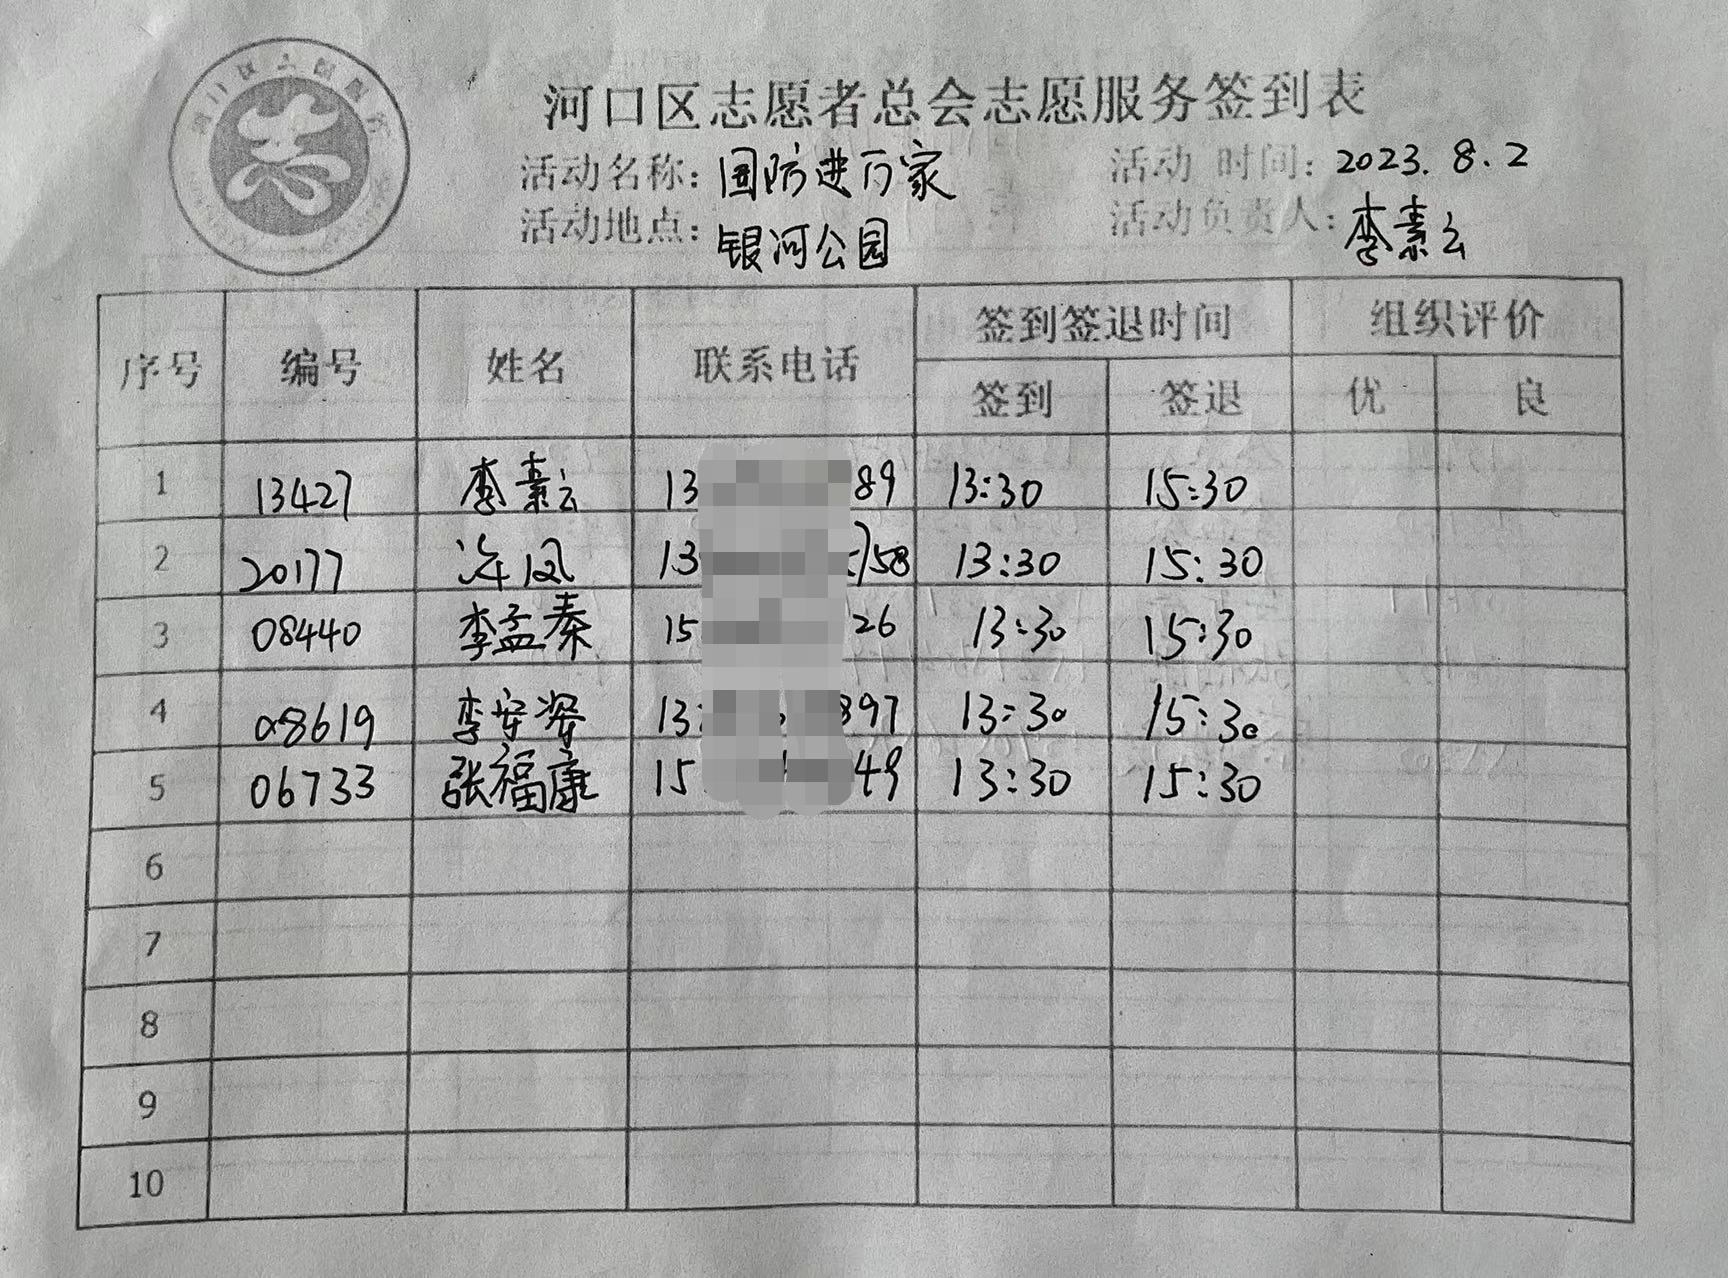 河口区志愿者总会志愿服务签到表
活动名称：国防进万家 活动时间：2023.8.2
活动地点：银河公园 活动负责人：李素云
序号 编号 姓名 联系电话 签到签退时间 组织评价
签到 签退 优 良
1 13427 李素云 13 89 13:30 15:30
2 20177 13 58 13:30 15:30
3 08440 李孟秦 15 26 13:30 15:30
4 08619 李安 13 897 13:30 15:30
5 06733 张福康 15 49 13:30 15:30
6
7
8
9
10